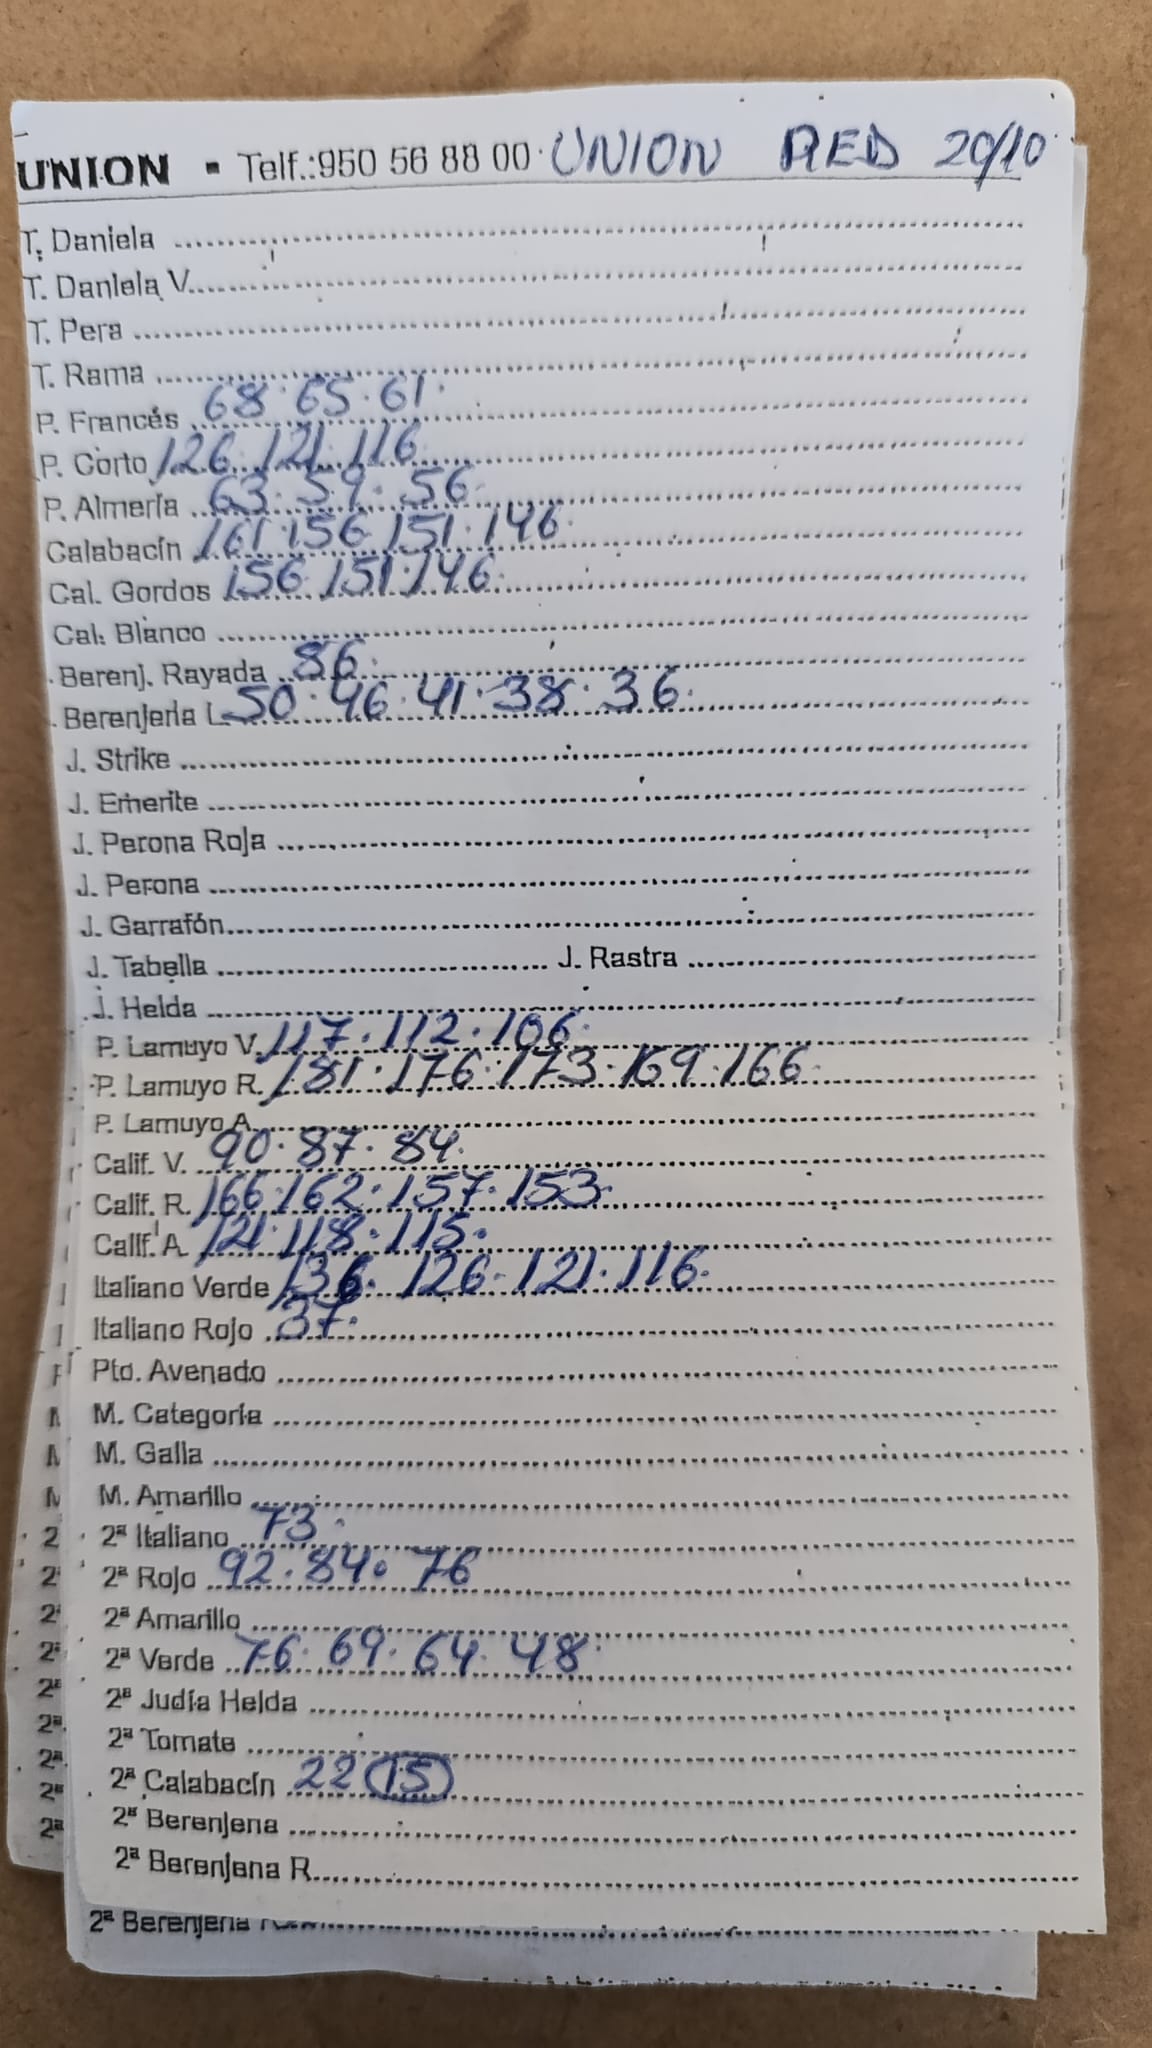 UNION ▪ Telf.:950 56 88 00 UNION RED 20/10
T. Daniela
T. Daniela V.
T. Pera
T. Rama
P. Francés 68·65·61·
P. Corto 126·121·116
P. Almería 63·59·56·
Calabacín 161·156·151·146·
Cal. Gordos 156·151·146·
Cal. Blanco
Berenj. Rayada 86·
Berenjena L. 50·46·41·38·36·
J. Strike
J. Emerite
J. Perona Roja
J. Perona
J. Garrafón
J. Tabella J. Rastra
J. Helda
P. Lamuyo V. 117·112·106·
P. Lamuyo R. 181·176·173·169·166·
P. Lamuyo A.
Calif. V. 90·87·84·
Calif. R. 166·162·157·153·
Calif. A. 121·118·115·
Italiano Verde 136·126·121·116·
Italiano Rojo 37·
Pto. Avenado
M. Categoría
M. Galia
M. Amarillo
2ª Italiano 73·
2ª Rojo 92·84·76
2ª Amarillo
2ª Verde 76·69·64·48·
2ª Judía Helda
2ª Tomate
2ª Calabacín 22 15
2ª Berenjena
2ª Berenjena R.
2ª Berenjena